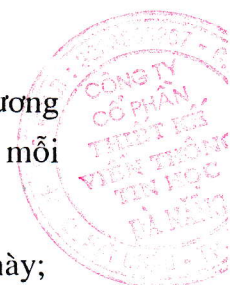 ương
mỗi
này;
CÔNG TY
CỔ PHẦN
THIẾT KẾ
VIỄN THÔNG
TIN HỌC
ĐÀ NẴNG